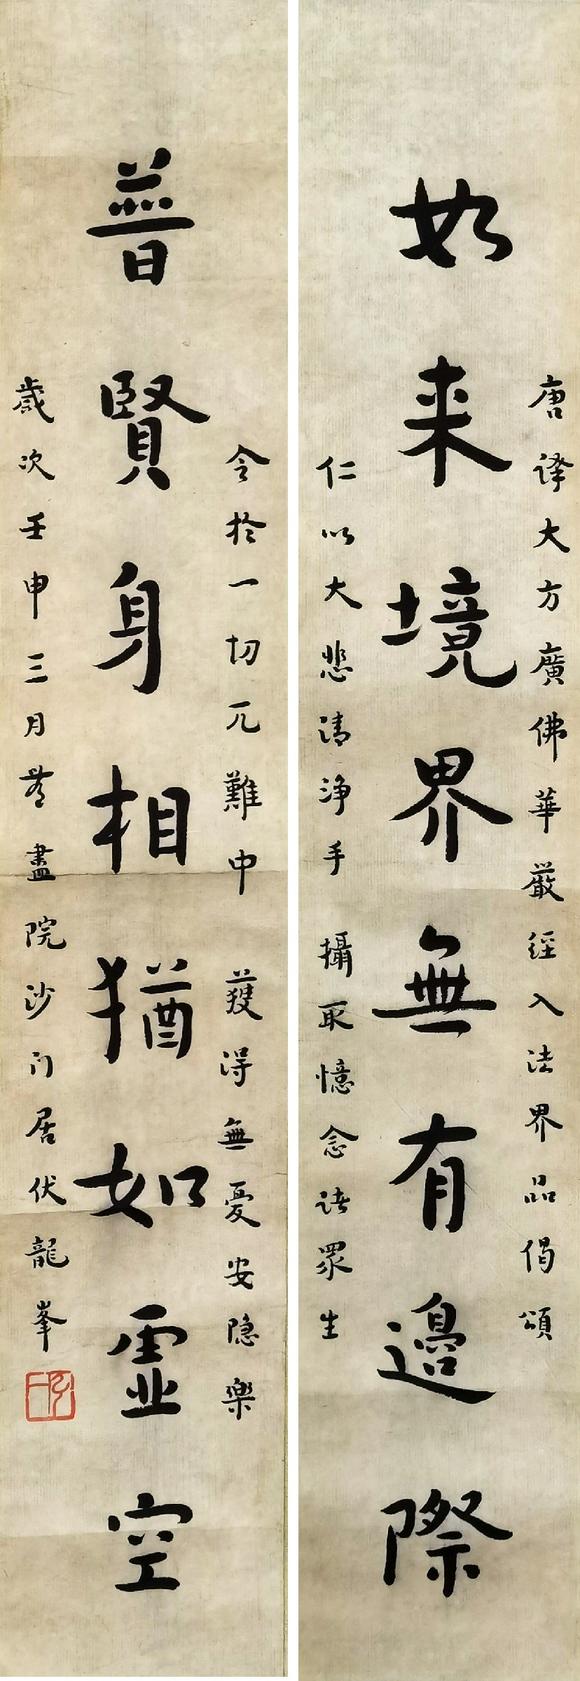 唐译大方廣佛華嚴經入法界品偈頌
如来境界無有邊際
仁以大悲清淨手 攝取憶念諸眾生
令於一切厄難中 獲得無憂安隱樂
普賢身相猶如虛空
歲次壬申三月盡院沙门居伏龍峯